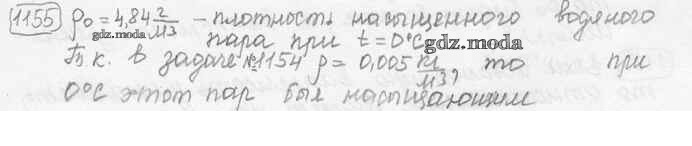 1155 ρ₀ = 4,84 г/м3 - плотность насыщенного водяного
пара при t = 0°C
gdz.moda gdz.moda
Т.к. в задаче №1154 ρ = 0,005 кг/м3, то при
0°C этот пар был насыщающим
gdz.moda